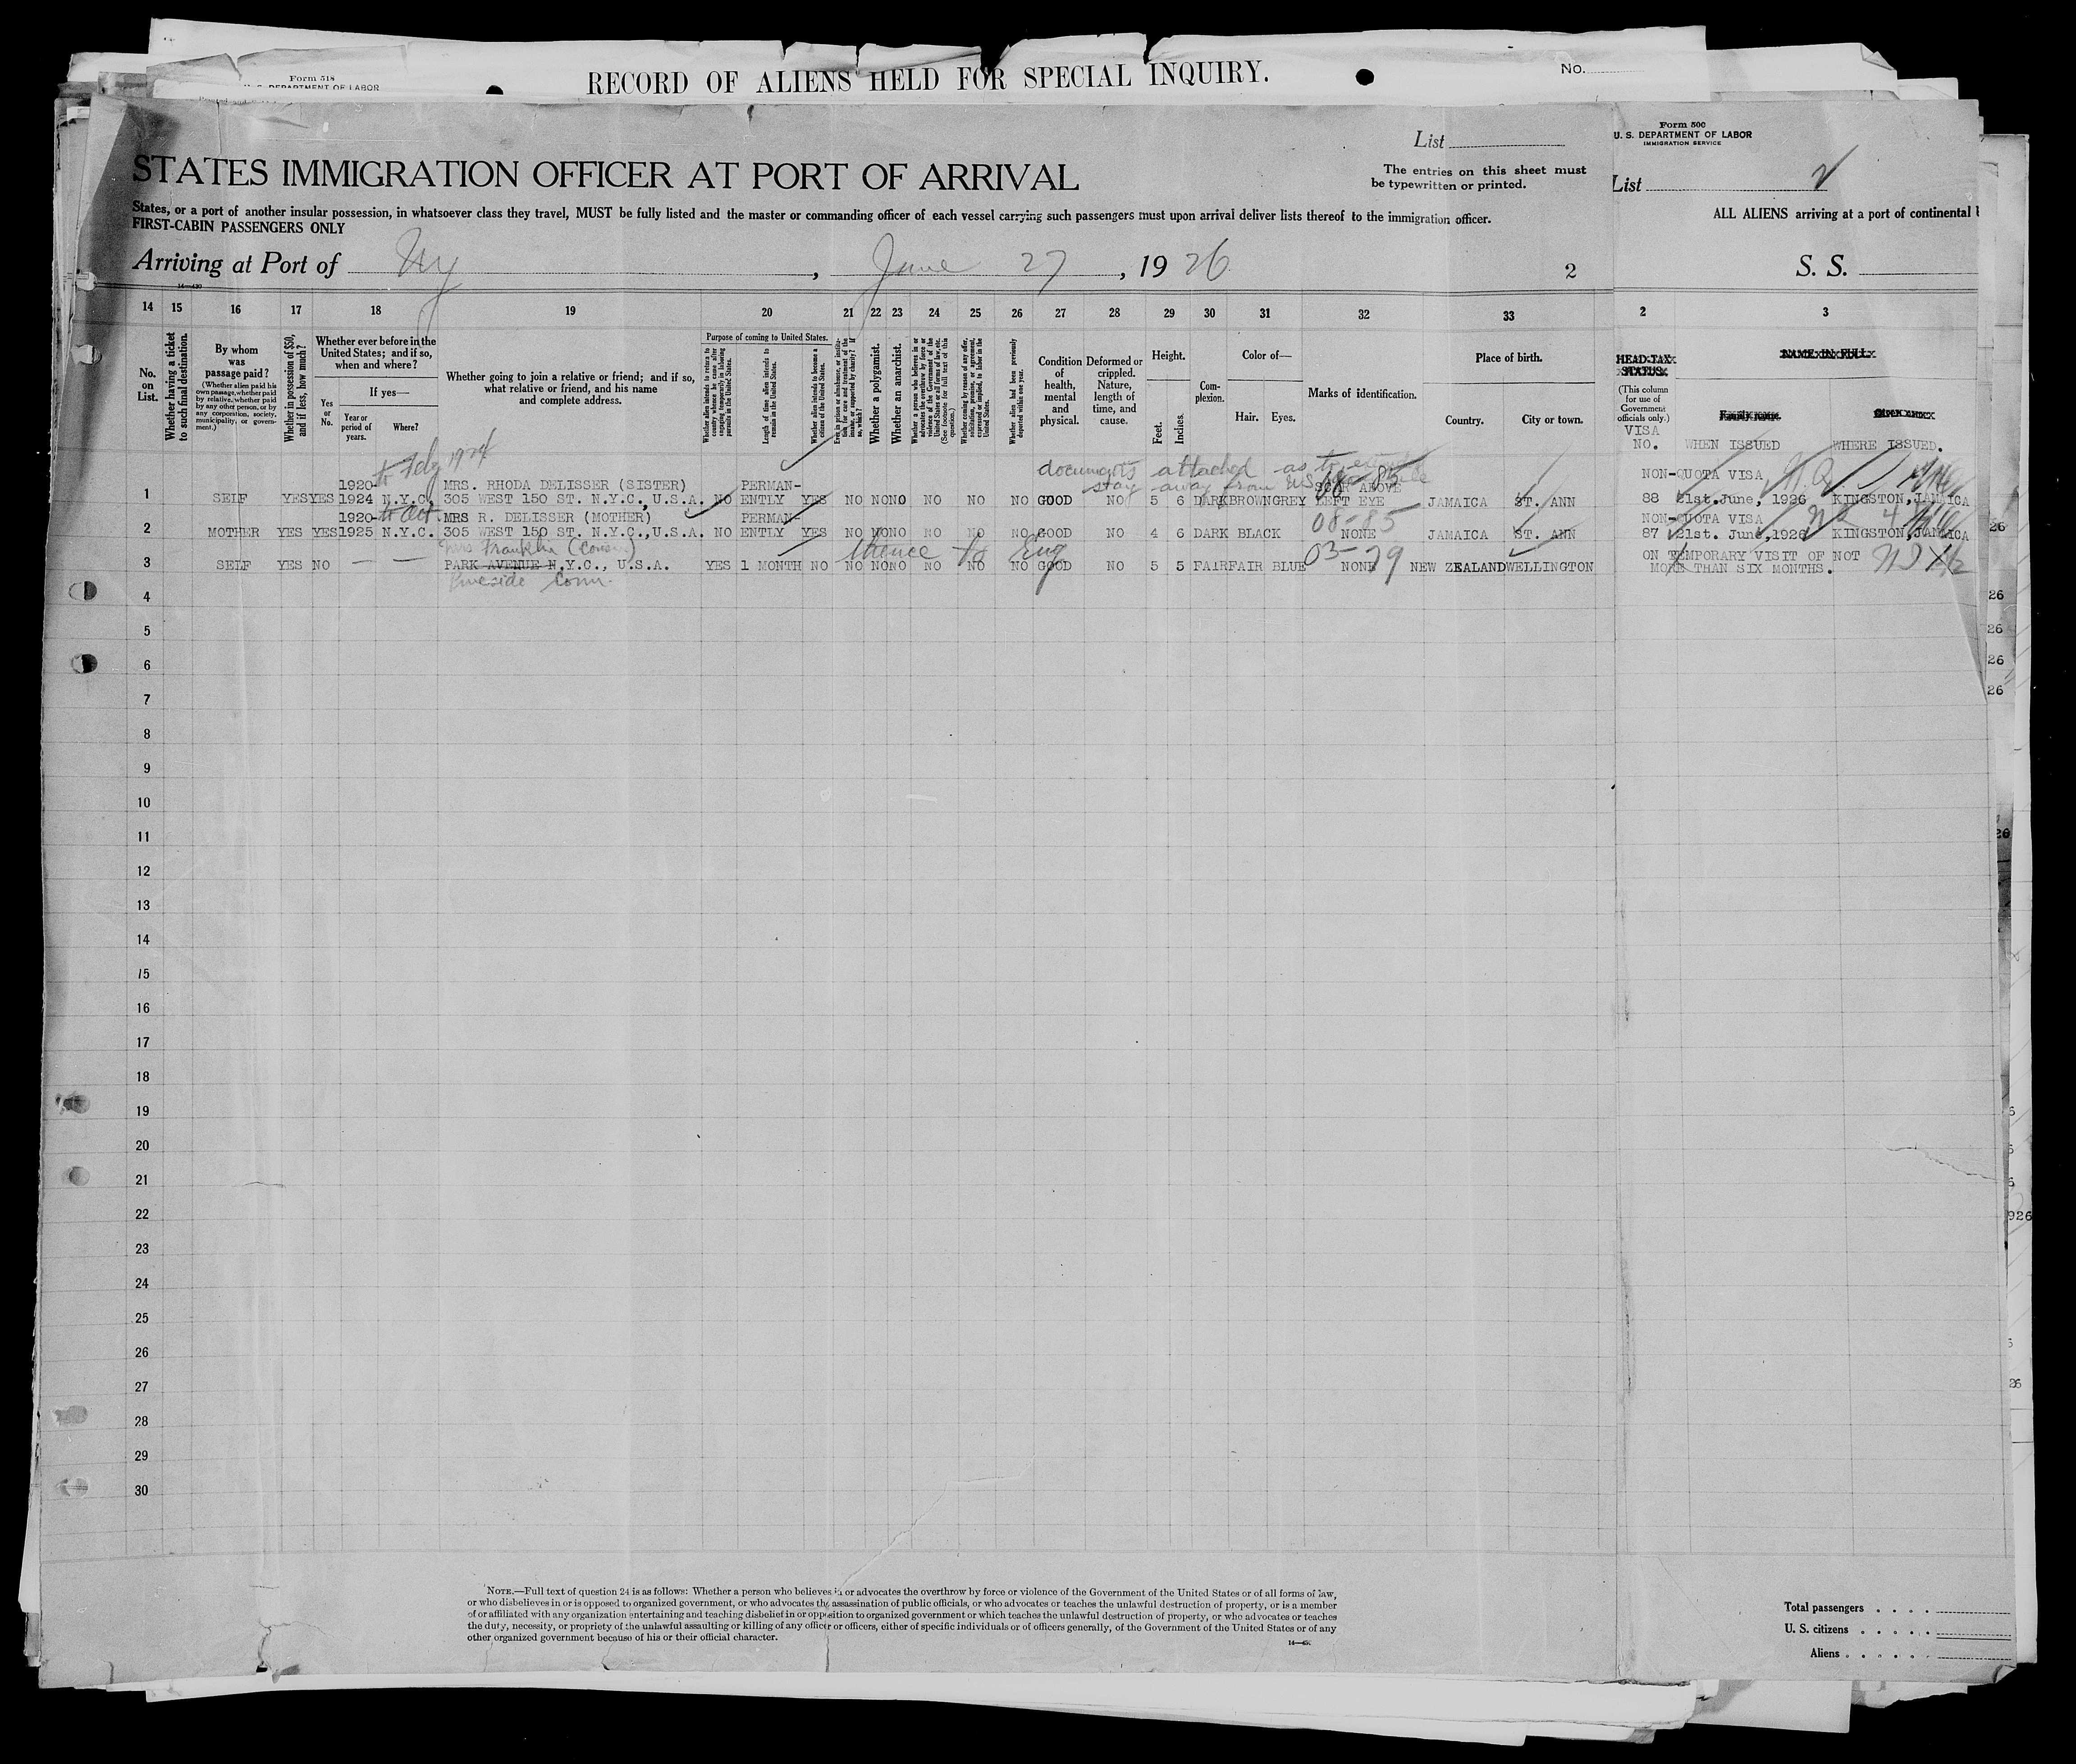 Form 518
U. S. DEPARTMENT OF LABOR
RECORD OF ALIENS HELD FOR SPECIAL INQUIRY.
No.
List
STATES IMMIGRATION OFFICER AT PORT OF ARRIVAL
The entries on this sheet must
be typewritten or printed.
States, or a port of another insular possession, in whatsoever class they travel, MUST be fully listed and the master or commanding officer of each vessel carrying such passengers must upon arrival deliver lists thereof to the immigration officer.
FIRST-CABIN PASSENGERS ONLY
Arriving at Port of Ny, June 27, 1926
2
Form 500
U. S. DEPARTMENT OF LABOR
IMMIGRATION SERVICE
List
ALL ALIENS arriving at a port of continental
S. S.
14 15 16 17 18 19 20 21 22 23 24 25 26 27 28 29 30 31 32 33 2 3
No. on List.
Whether having a ticket to such final destination.
By whom was passage paid?
(Whether alien paid his own passage, whether paid by relative, whether paid by any other person, or by any corporation, society, municipality, or government.)
Whether in possession of $50, and if less, how much?
Whether ever before in the United States; and if so, when and where?
If yes—
Yes or No.
Year or period of years.
Where?
Whether going to join a relative or friend; and if so, what relative or friend, and his name and complete address.
Purpose of coming to United States.
Length of time alien intends to remain in the United States.
Whether alien intends to become a citizen of the United States.
Whether a polygamist.
Whether an anarchist.
Whether alien had been previously deported within one year.
Condition of health, mental and physical.
Deformed or crippled. Nature, length of time, and cause.
Height.
Feet. Inches.
Complexion.
Color of—
Hair. Eyes.
Marks of identification.
Place of birth.
Country. City or town.
HEAD-TAX STATUS
(This column for use of Government officials only.)
NAME IN FULL
Family name. Given name
VISA NO. WHEN ISSUED WHERE ISSUED.
to Feby 1924
documents attached as to
stay away from U.S.
08-85
1 SELF YES YES 1920-1924 N.Y.C. MRS. RHODA DELISSER (SISTER) 305 WEST 150 ST. N.Y.C., U.S.A. NO PERMANENTLY YES NO NO NO NO NO NO GOOD NO 5 6 DARK BROWN GREY SCAR ABOVE LEFT EYE JAMAICA ST. ANN
NON-QUOTA VISA
88 21st.June, 1926 KINGSTON, JAMAICA
to Oct.
08-85
2 MOTHER YES YES 1920-1925 N.Y.C. MRS R. DELISSER (MOTHER) 305 WEST 150 ST. N.Y.C., U.S.A. NO PERMANENTLY YES NO NO NO NO NO NO GOOD NO 4 6 DARK BLACK NONE JAMAICA ST. ANN
NON-QUOTA VISA
87 21st. June, 1926 KINGSTON, JAMAICA
Mrs Franklin (Cousin)
thence to Eng
03-79
3 SELF YES NO — — PARK AVENUE N.Y.C., U.S.A. YES 1 MONTH NO NO NO NO NO NO NO GOOD NO 5 5 FAIR FAIR BLUE NONE NEW ZEALAND WELLINGTON
ON TEMPORARY VISIT OF NOT
MORE THAN SIX MONTHS.
Riverside Conn.
4
5
6
7
8
9
10
11
12
13
14
15
16
17
18
19
20
21
22
23
24
25
26
27
28
29
30
NOTE.—Full text of question 24 is as follows: Whether a person who believes in or advocates the overthrow by force or violence of the Government of the United States or of all forms of law,
or who disbelieves in or is opposed to organized government, or who advocates the assassination of public officials, or who advocates or teaches the unlawful destruction of property, or is a member
of or affiliated with any organization entertaining and teaching disbelief in or opposition to organized government or which teaches the unlawful destruction of property, or who advocates or teaches
the duty, necessity, or propriety of the unlawful assaulting or killing of any officer or officers, either of specific individuals or of officers generally, of the Government of the United States or of any
other organized government because of his or their official character.
Total passengers
U. S. citizens
Aliens